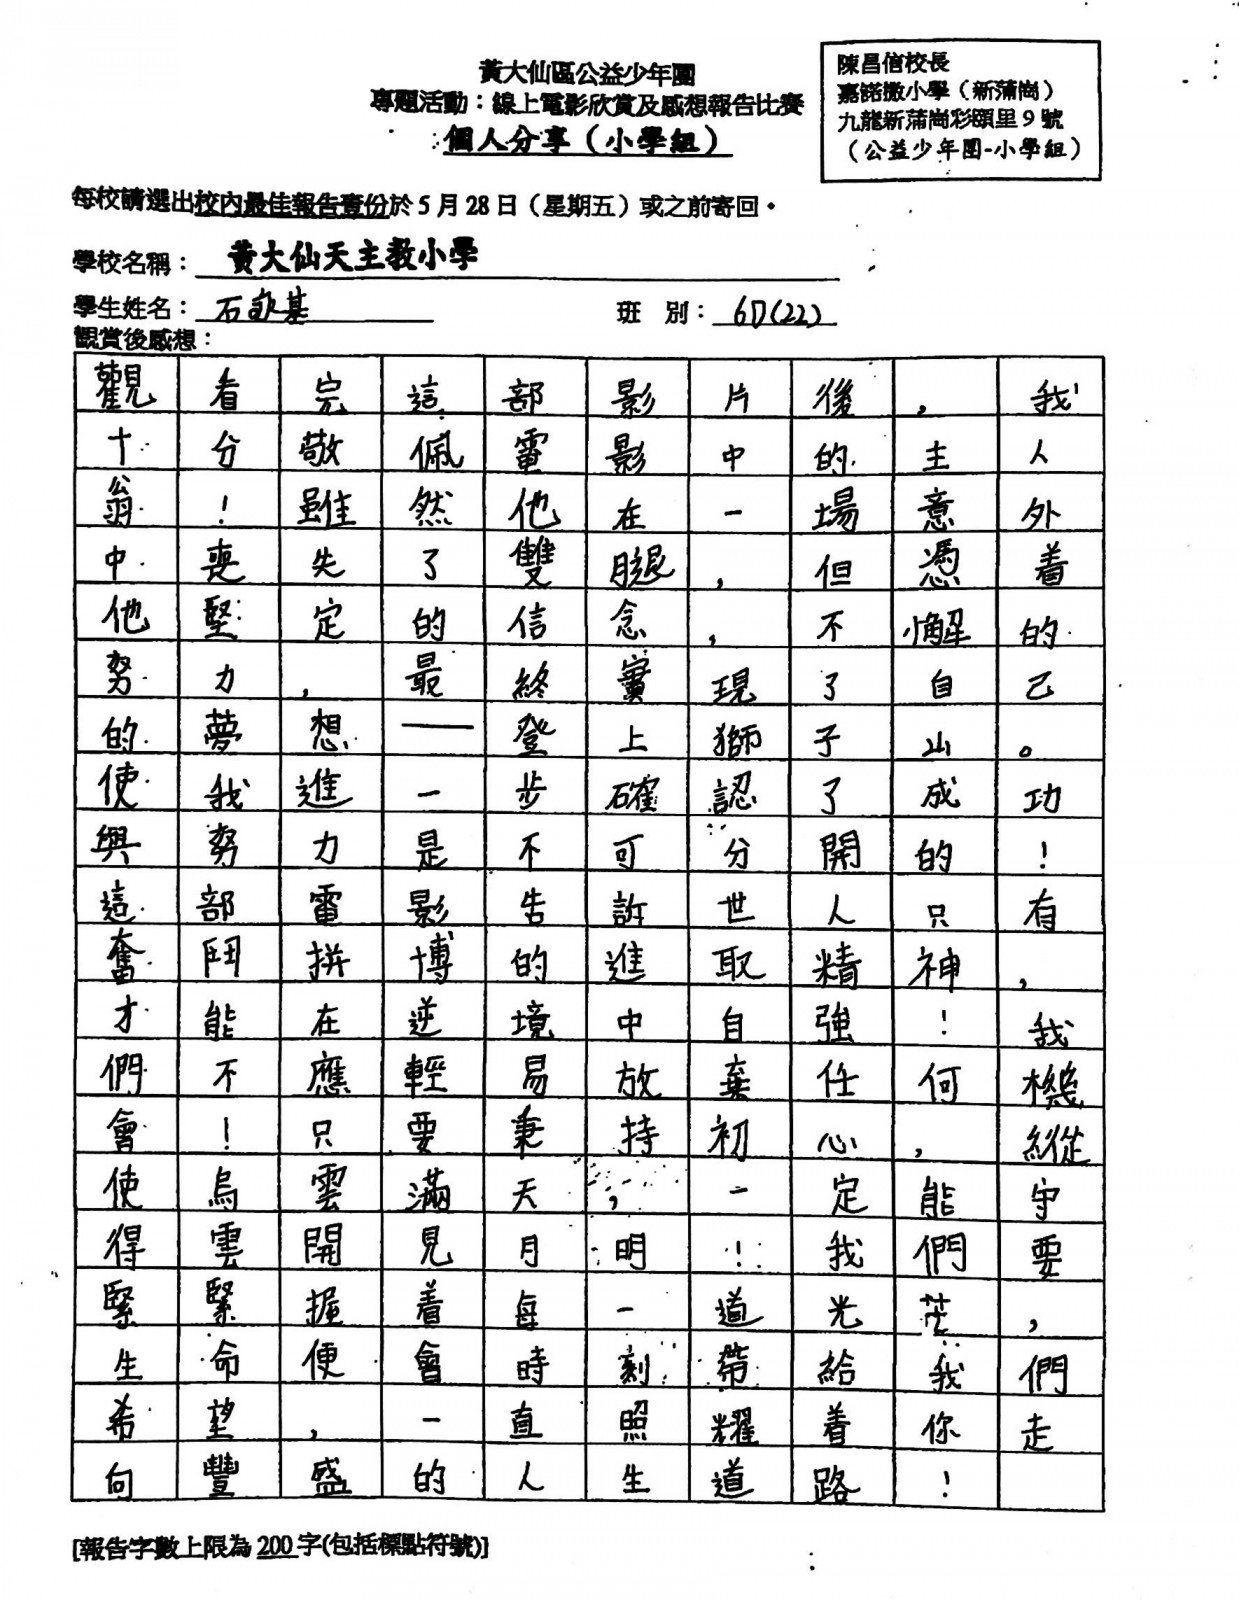 黃大仙區公益少年團
專題活動：線上電影欣賞及感想報告比賽
個人分享（小學組）
陳昌信校長
嘉諾撒小學（新蒲崗）
九龍新蒲崗彩頤里9號
（公益少年團-小學組）
每校請選出校內最佳報告壹份於5月28日（星期五）或之前寄回。
學校名稱：黃大仙天主教小學
學生姓名：石 基 班 別：6D(22)
觀賞後感想：
觀看完這部影片後，我
十分敬佩電影中的主人
翁！雖然他在一場意外
中喪失了雙腿，但憑着
他堅定的信念，不懈的
努力，最終實現了自己
的夢想——登上獅子山。
使我進一步確認了成功
與努力是不可分開的！
這部電影告訴世人只有
奮鬥拼博的進取精神，
才能在逆境中自強！我
們不應輕易放棄任何機
會！只要秉持初心，縱
使烏雲滿天，一定能守
得雲開見月明！我們要
緊緊握着每一道光芒，
生命便會時刻帶給我們
希望，一直照耀着你走
向豐盛的人生道路！
[報告字數上限為200字(包括標點符號)]